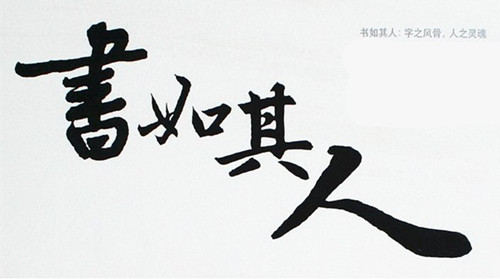 書如其人
书如其人：字之风骨，人之灵魂